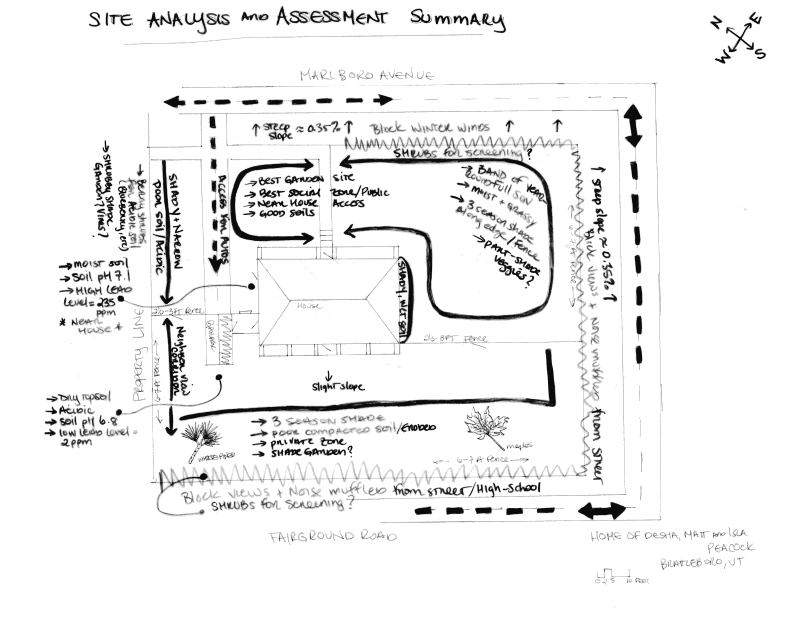 SITE ANALYSIS AND ASSESSMENT SUMMARY
N
E
W
S
MARLBORO AVENUE
↑ STEEP SLOPE ≈ 0.35% ↑
Block WINTER WINDS ↑ ↑
SHRUBS for SCREENING?
→ SHRUBBY SHADE
GARDEN? VINES?
→ BERRY SHRUBS
for ACIDIC SOIL
(Blueberry, etc)
SHADY + NARROW
POOR SOIL/ACIDIC
ACCESS FOR AUTOS
→ BEST GARDEN SITE
→ BEST SOCIAL ZONE/PUBLIC
→ NEAR HOUSE ACCESS
→ GOOD SOILS
→ BAND OF YEAR
ROUND FULL SUN
→ MOIST + GRASSY
→ 3 SEASON SHADE
along edge/Fence
→ PART-SHADE
VEGGIES?
↑ STEEP SLOPE ≈ 0.35% ↑
Block views + Noise mufflers from STREET
→ MOIST SOIL
→ SOIL pH 7.1
→ HIGH LEAD
LEVEL = 235
ppm
* NEAR
HOUSE *
HOUSE
SHADY + WET SOIL
PROPERTY LINE
Neighbor view
CORRIDOR
Slight slope
→ DRY TOPSOIL
→ ACIDIC
→ SOIL pH 6.8
→ LOW LEAD LEVEL =
2 ppm
→ 3 SEASON SHADE
→ POOR COMPACTED SOIL/ERODED
→ PRIVATE ZONE
→ SHADE GARDEN?
WHITE PINE
MAPLES
← 6-7 ft FENCE →
Block VIEWS + NOISE mufflers from STREET/HIGH-SCHOOL
SHRUBS for SCREENING?
FAIRGROUND ROAD
HOME OF DESHA, MATT AND IRA
PEACOCK
BRATLEBORO, VT
0 2 5 10 FEET